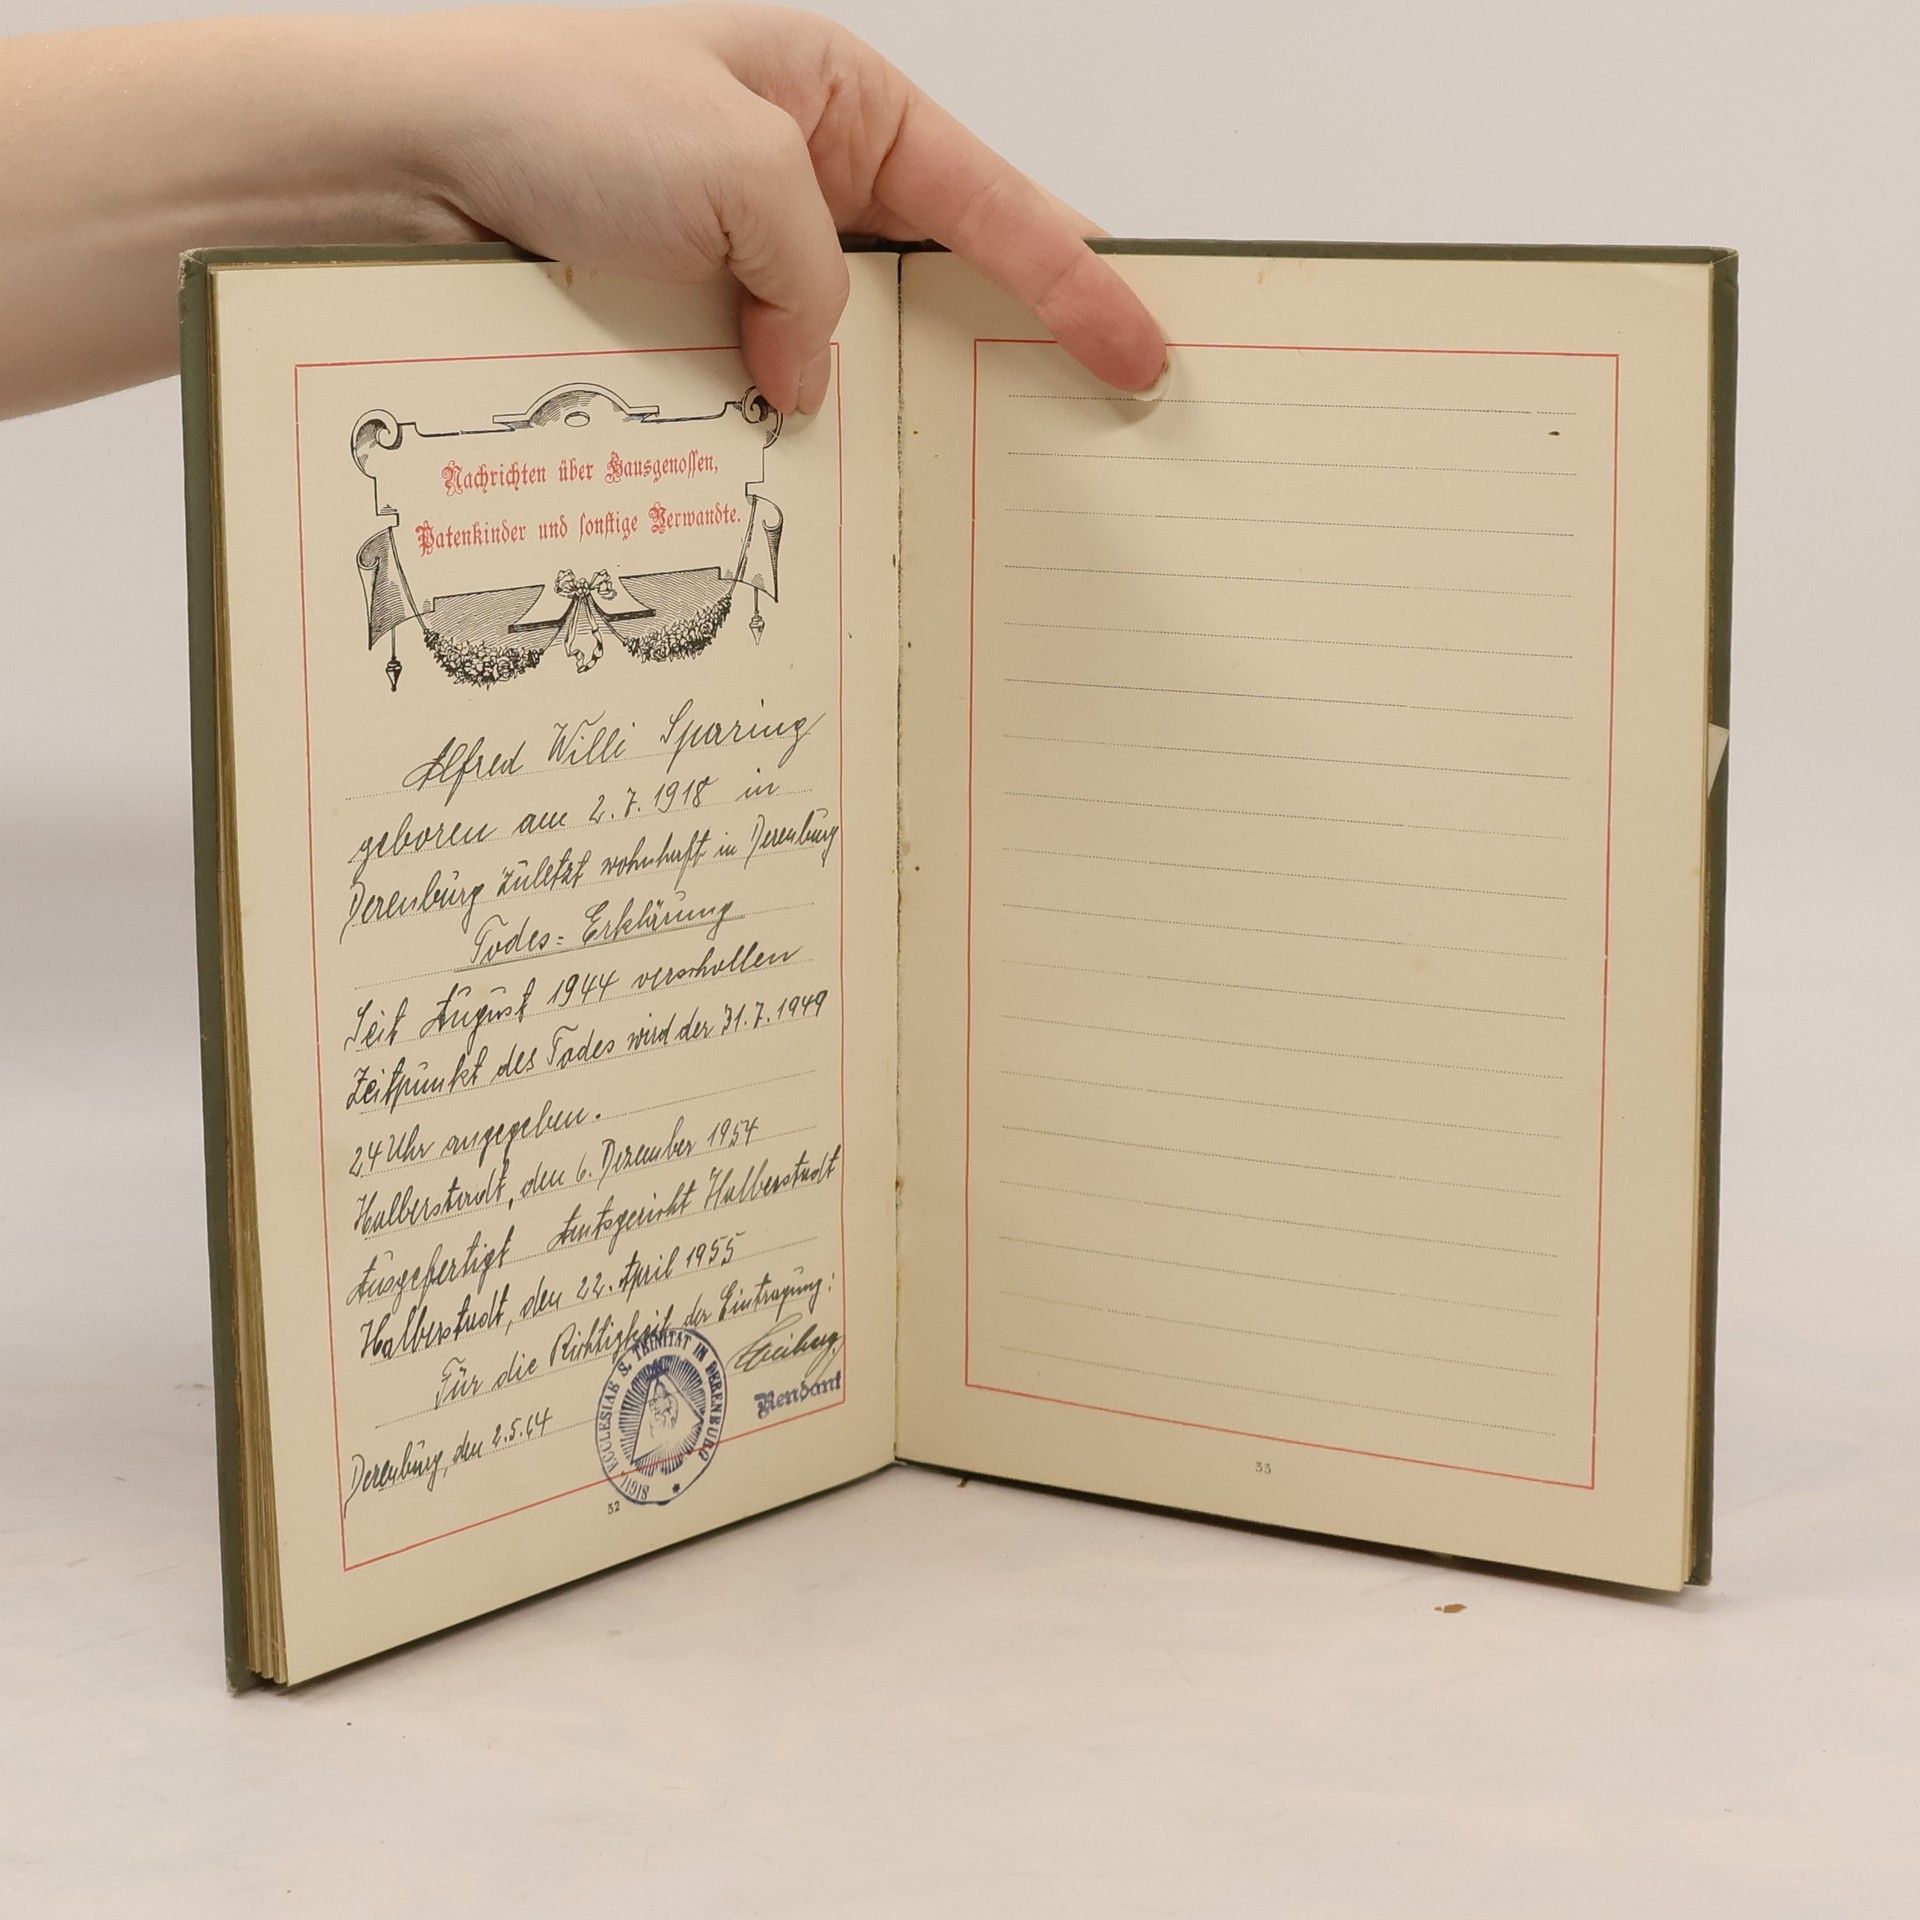 Nachrichten über Hausgenossen,
Patenkinder und sonstige Verwandte.
Alfred Willi Sparing
geboren am 2.7.1918 in
Derenburg zuletzt wohnhaft in Derenburg
Todes=Erklärung
Seit August 1944 verschollen
Zeitpunkt des Todes wird der 31.7.1949
24 Uhr angegeben.
Halberstadt, den 6. Dezember 1954
Ausgefertigt Amtsgericht Halberstadt
Halberstadt, den 22. April 1955
Für die Richtigkeit der Eintragung:
Rendant
Derenburg, den 2.5.64
SIGIL ECCLESIAE S. TRINITAT IN DERENBURG *
32
33